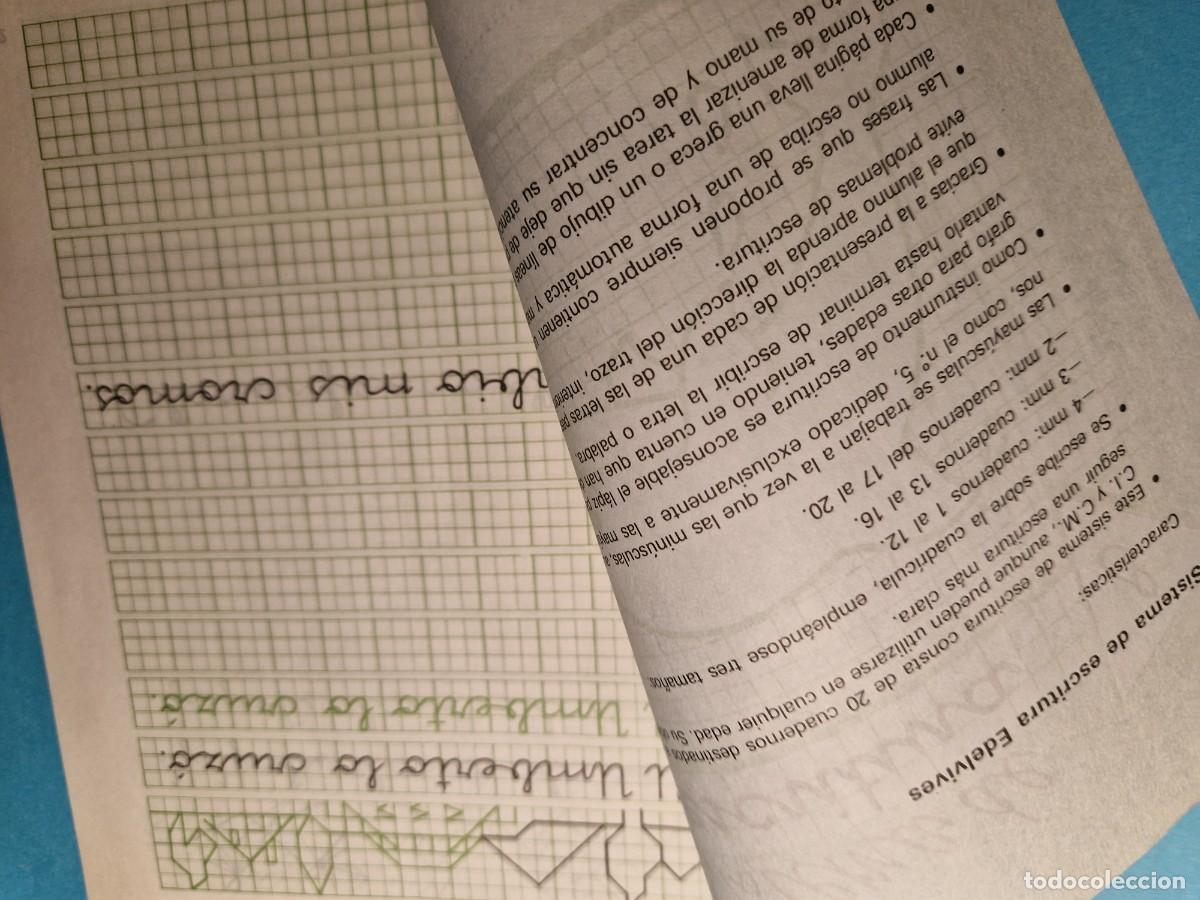 Sistema de escritura Edelvives
Características:
• Este sistema de escritura consta de 20 cuadernos destinados
C.I. y C.M., aunque pueden utilizarse en cualquier edad. Su
seguir una escritura más clara.
• Se escribe sobre la cuadrícula, empleándose tres tamaños:
—4 mm: cuadernos 1 al 12.
—3 mm: cuadernos 13 al 16.
—2 mm: cuadernos del 17 al 20.
• Las mayúsculas se trabajan a la vez que las minúsculas,
nos, como el n.º 5, dedicado exclusivamente a las
• Como instrumento de escritura es aconsejable el lápiz
grafo para otras edades, teniendo en cuenta que han
vantarlo hasta terminar de escribir la letra o palabra.
• Gracias a la presentación de cada una de las letras
que el alumno aprenda la dirección del trazo,
evite problemas de escritura.
• Las frases que se proponen siempre contienen
alumno no escriba de una forma automática y
• Cada página lleva una greca o un dibujo de líneas
una forma de amenizar la tarea sin que deje de
de su mano y de concentrar su
Umberto lo cruzó.
Umberto lo cruzó.
mis cromos.
todocoleccion